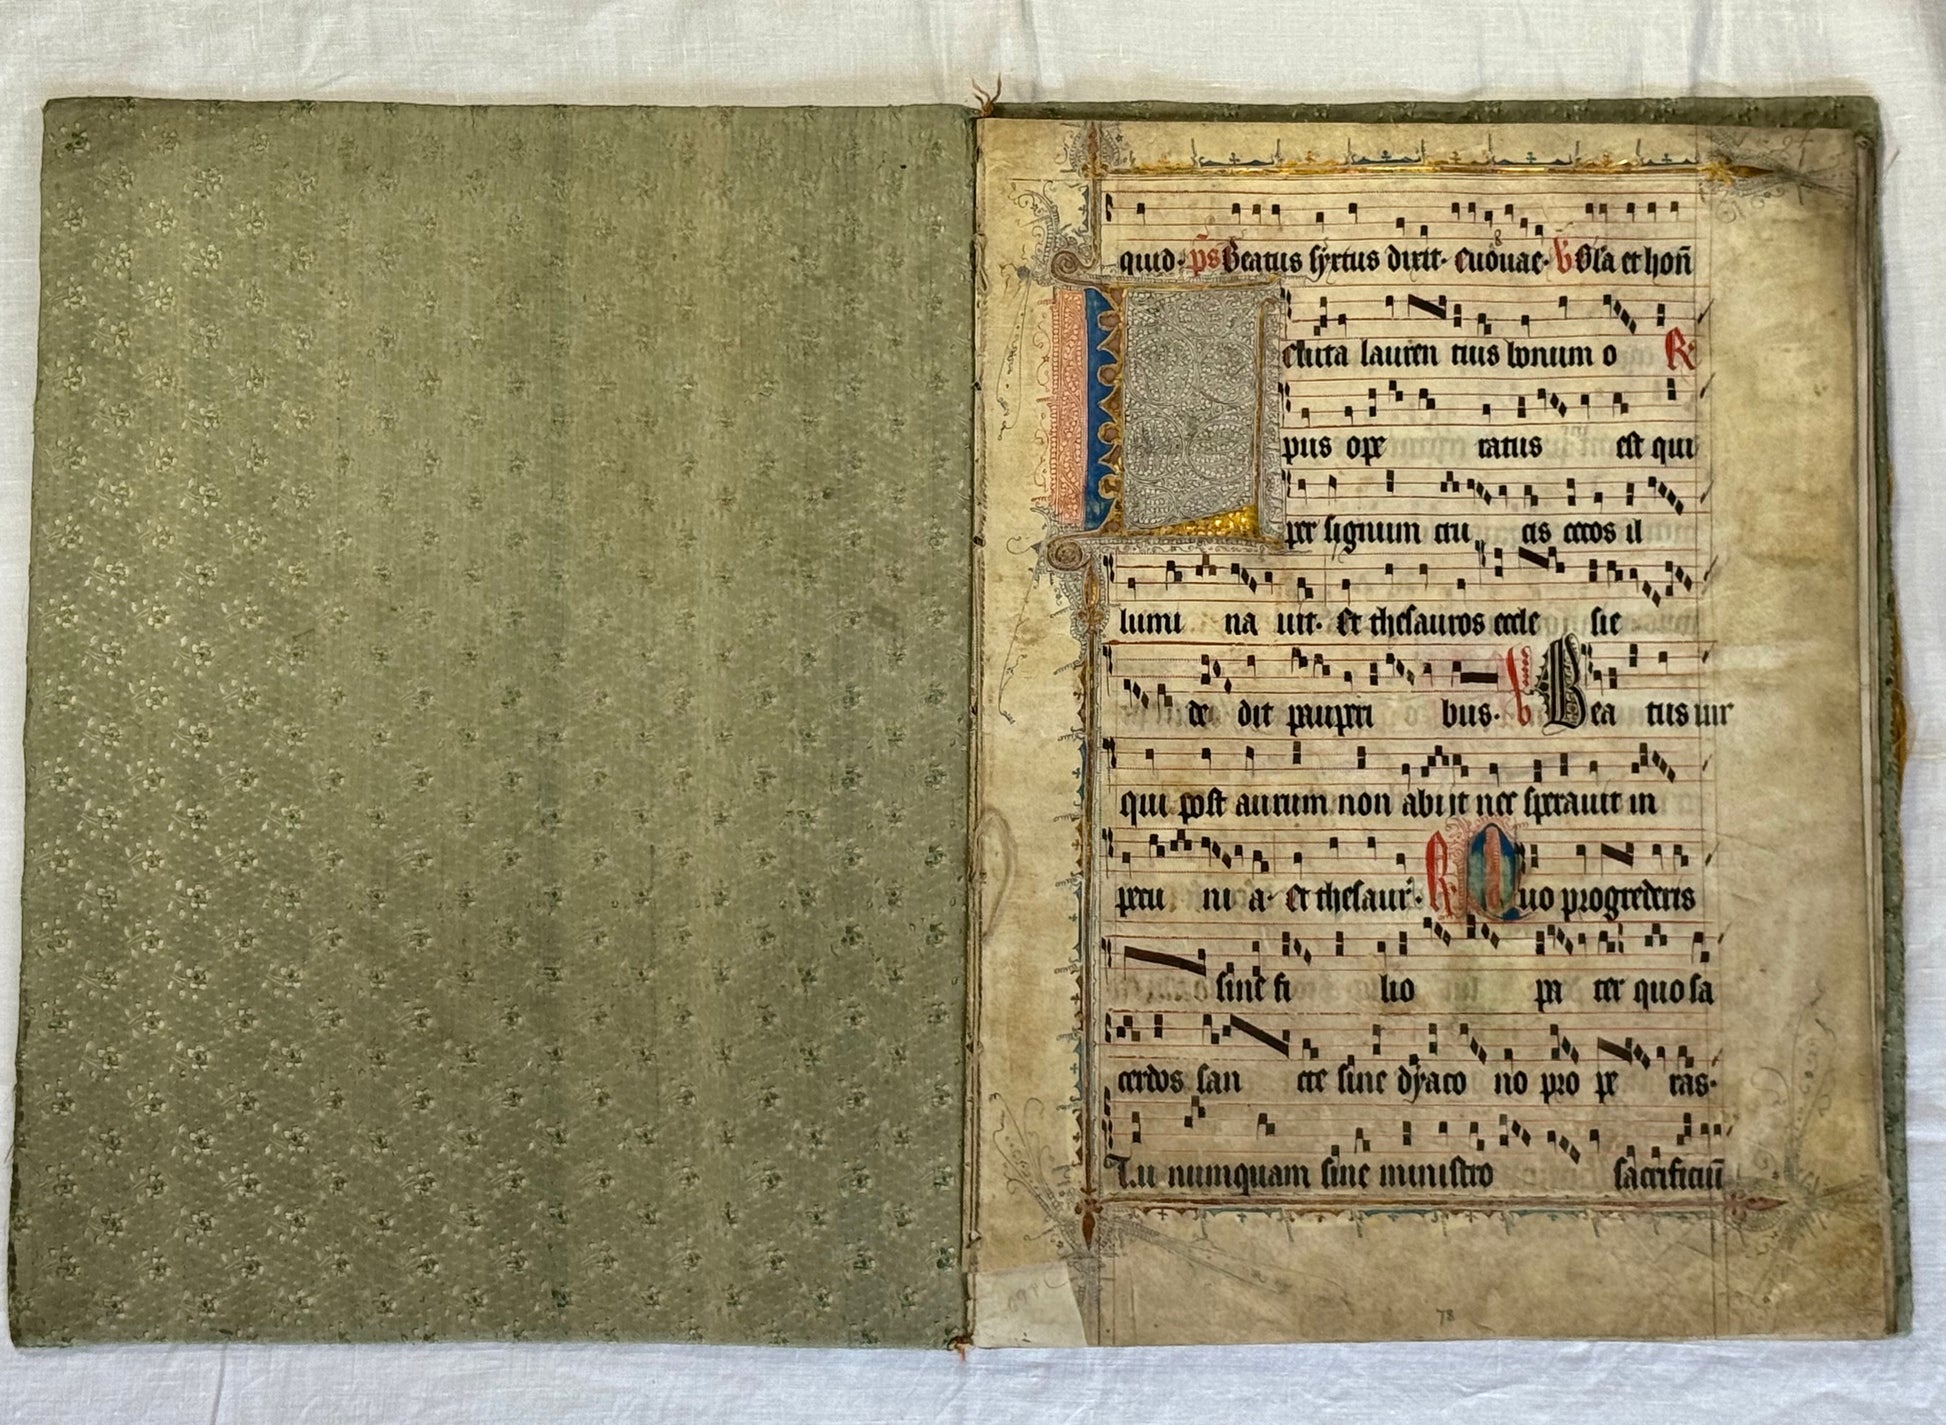 quid. p̄s Beatus syxtus dixit. Euouae. V Gl'a et hon̄
Leuita lauren tius bonum o R
pus ope ratus est qui
per signum cru cis cecos il
lumi na uit. Et thesauros eccle sie
de dit pauperi bus. V Bea tus uir
qui post aurum non abijt nec sperauit in
pecu ni a. Et thesaur'. R Quo progrederis
sine fi lio pa ter quo sa
cerdos san cte sine dyaco no pro pe ras.
Tu numquam sine ministro sacrificiū
78